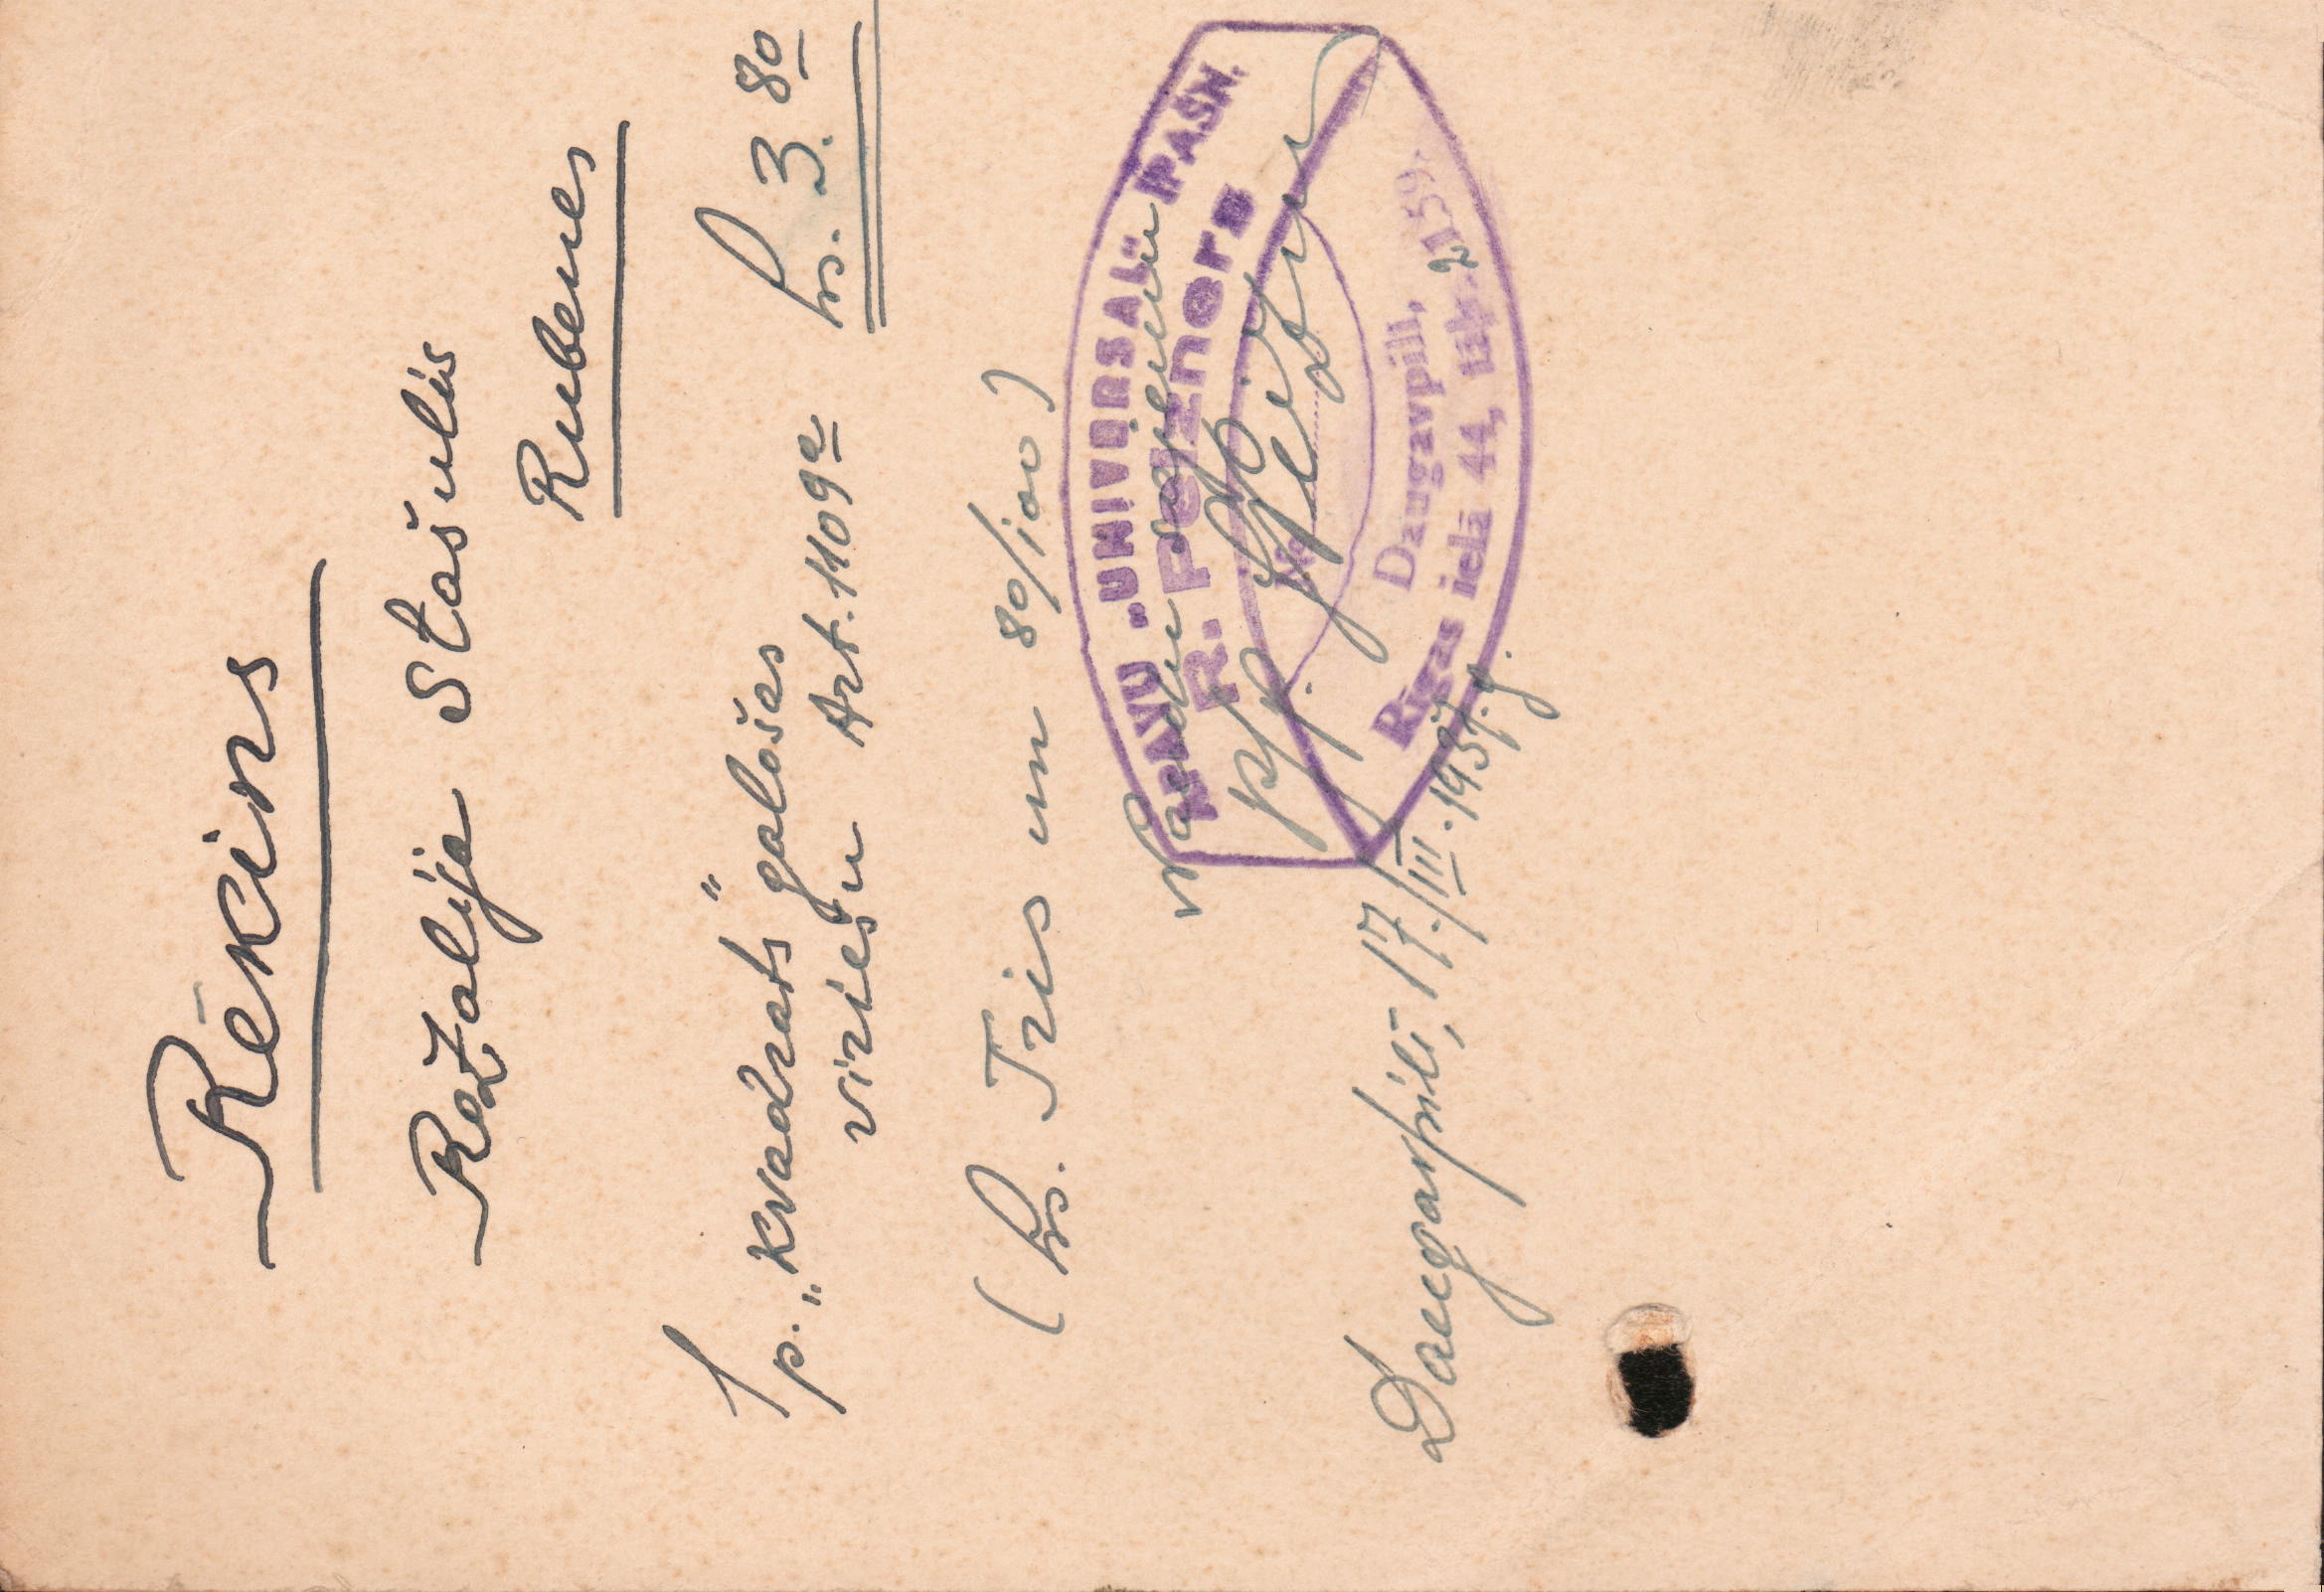 Rēķins
Rozalija Stašulis
Rubenes
1 p. „Kvadrats" galošas
viriešu Art. 110 9a Ls. 3.80
(Ls. Tris un 80/100)
Naudu saņemu
APAVU „UNIVERSAL" PAŠN.
R. Peizners
pp.
Daugavpilī,
Rīgas ielā 44, tālr. 2159.
Daugavpilī, 17./III.1937.g.